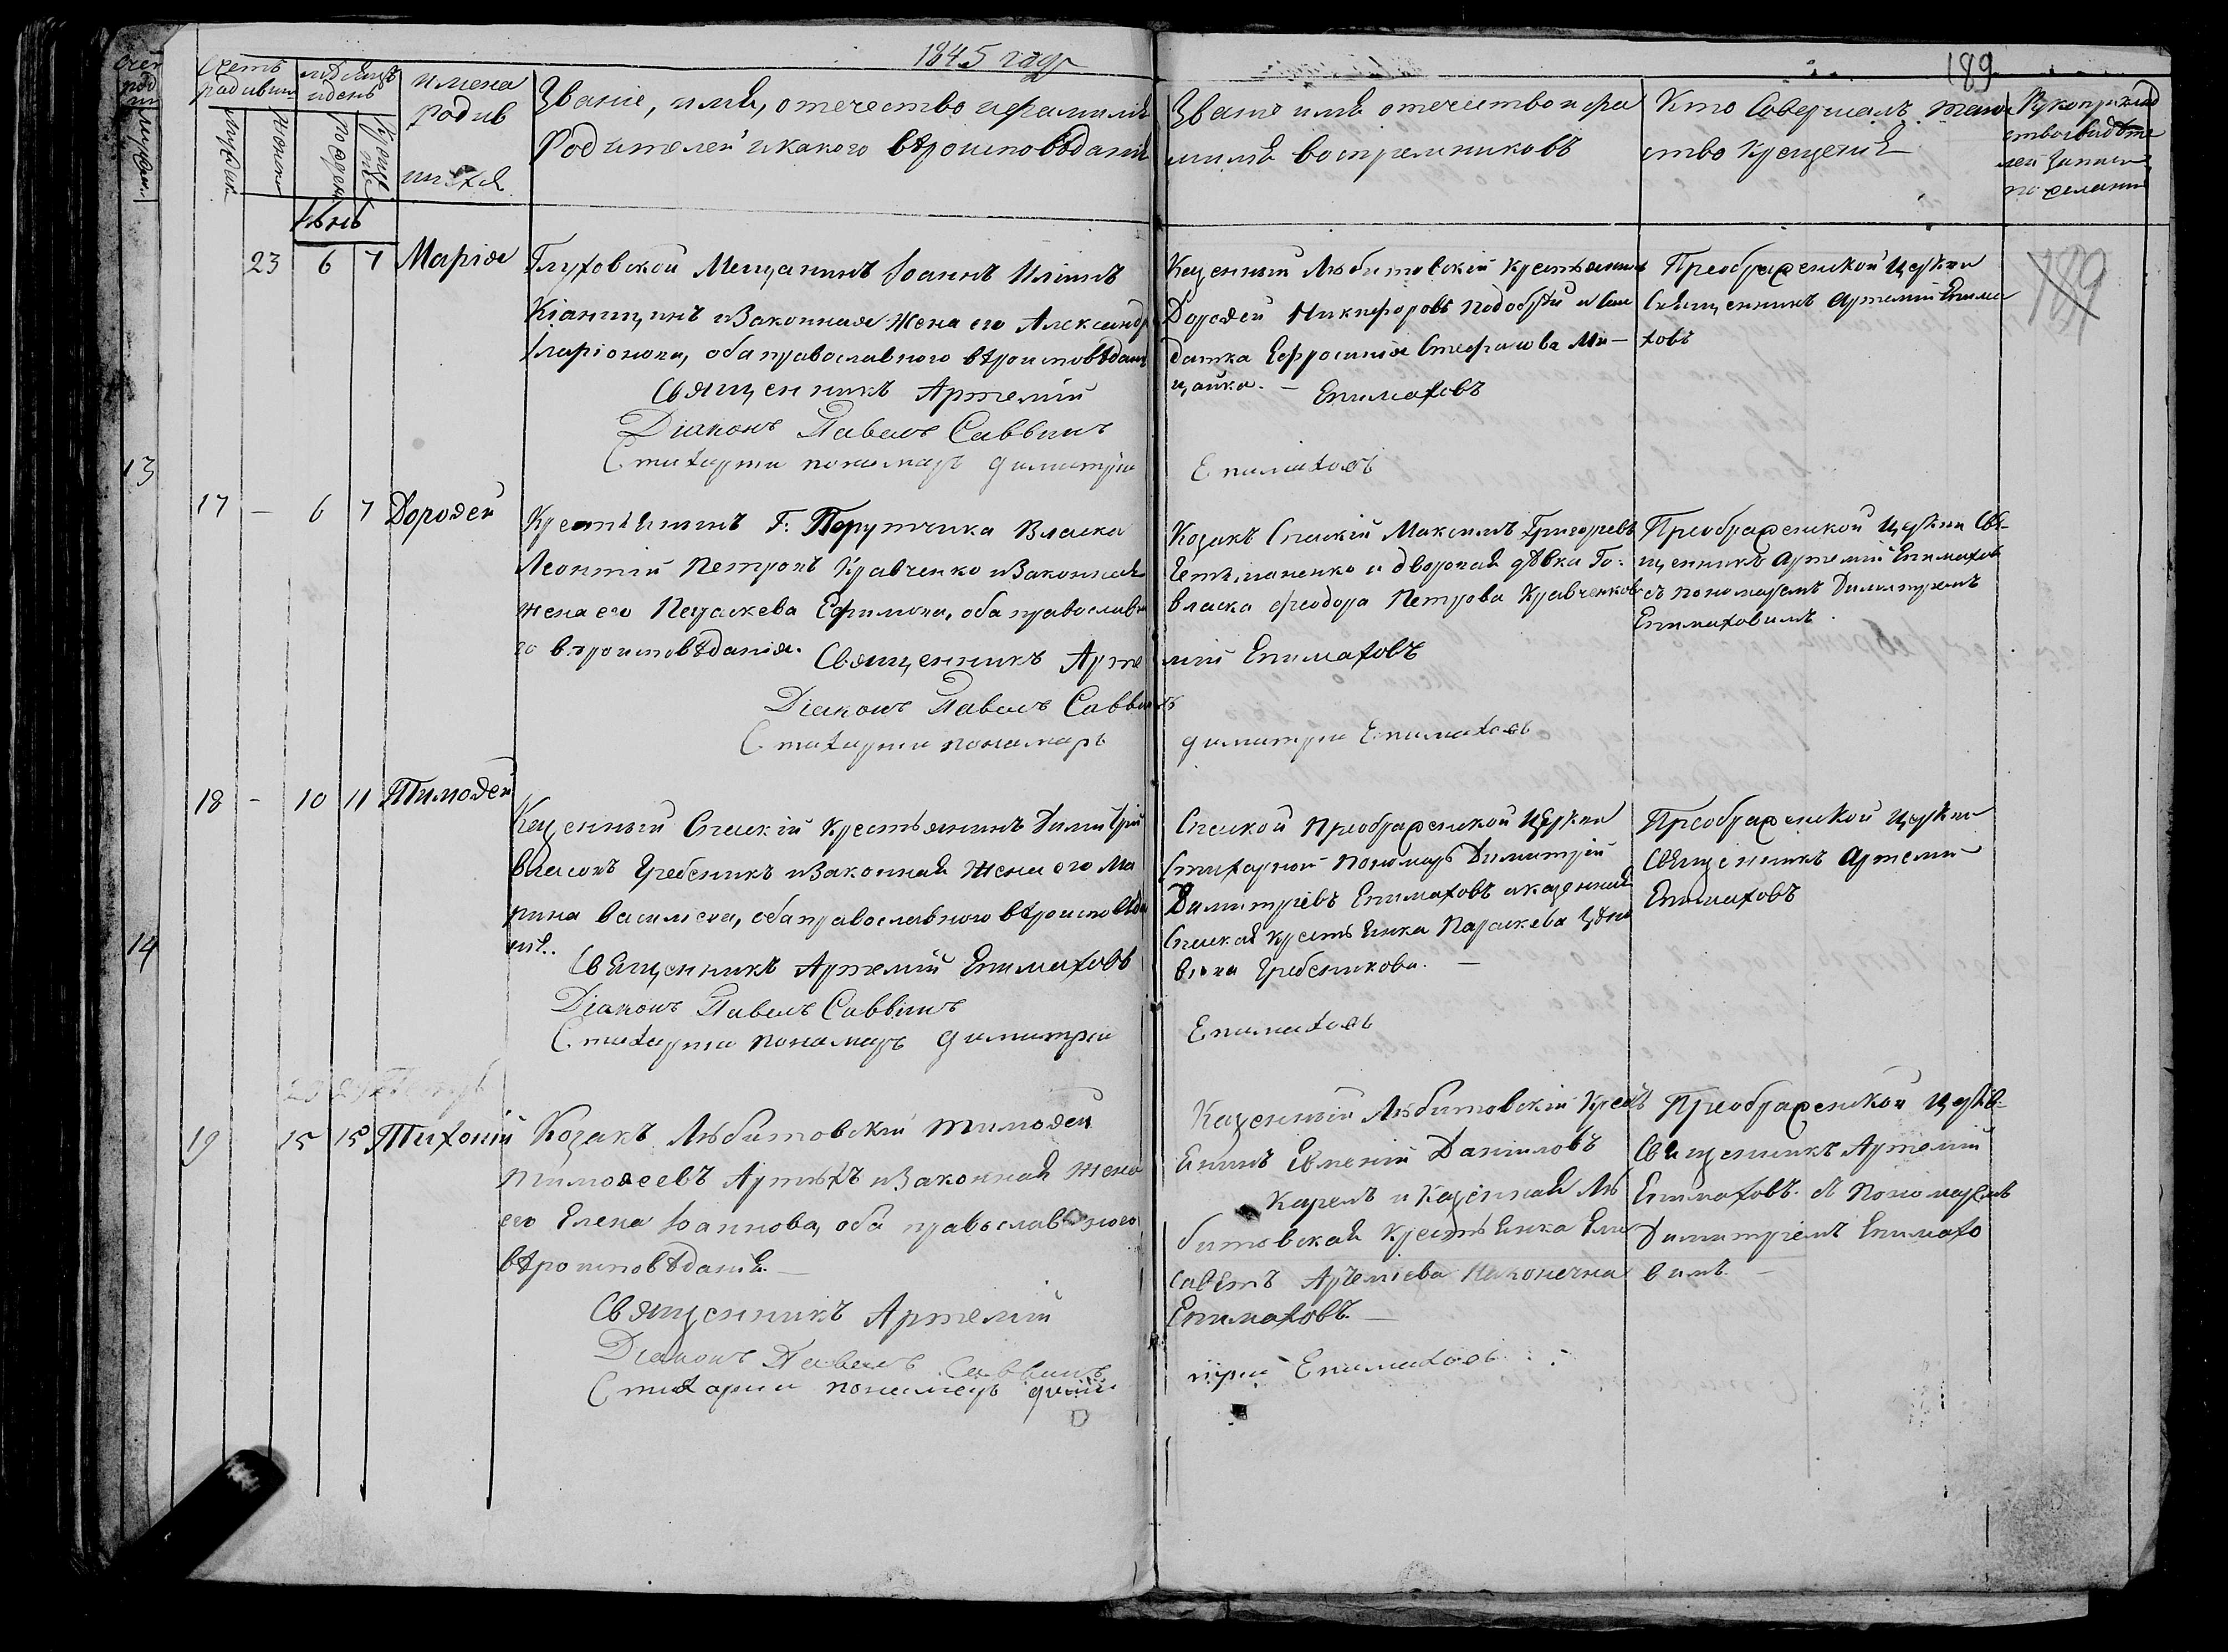 1845 года
189
Счетъ
родивш
Мужеск.
Женска
мѣсяцъ
и день
Рожден
Креще
имена
родив
шихся
Званіе, имя, отечество и фамилія
Родителей и какого вѣроисповѣданія
Званіе имя отечество и фа
милія воспріемниковъ
Кто Совершалъ таин
ство Крещенія
Рукоприклад
ство свидѣте
лей записи
по желанію
Іюнь
23 6 7 Марія
Глуховской Мещанинъ Іоаннъ Иліинъ
и Законная жена его Александра
Иларіонова, оба православного вѣроисповѣданія
Священникъ Артемій
Діаконъ Павелъ Саввинъ
Стихарни пономаръ Димитрій
Казенный Любитовскій Крестьянинъ
Дороѳей Никифоровъ и Сол
датка Ефросинія Стефанова Ми—
цайка. — Епимаховъ
Епимаховъ
Преображенской церкви
Священникъ Артемій Епима
ховъ
189
13
17 — 6 7 Дороѳей
Крестьянинъ Г: Порутчика Власка
Леонтій Петровъ Кравченко и Законная
жена его Параскева Ефимова, оба православно
го вѣроисповѣданія. Священникъ Арте
Діаконъ Павелъ Саввинъ
Стихарни пономаръ
Козакъ Спаскій Максимъ Григорьевъ
Гетьманенко и дворовая дѣвка Го:
Власка Феодора Петрова Кравченкова
мій Епимаховъ
Димитрій Епимаховъ
Преображенской церкви Свя
щенникъ Артемій Епимахов
съ пономаремъ Димитріемъ
Епимаховимъ.
18 - 10 11 Тимоѳей
Казенный Спаскій Крестьянинъ Димитрій
Власовъ Гребеникъ и Законная жена его Ма
рина Василіева, оба православного вѣроисповѣда
нія.
Священникъ Артемій Епимаховъ
Діаконъ Павелъ Саввинъ
Стихарни пономаръ Димитрій
Спаской Преображенской Церкви
Стихарной пономаръ Димитрій
Димитріевъ Епимаховъ и казенная
Спаская крестьянка Параскева
Гребеникова. —
Епимаховъ
Преображенской церкви
Священникъ Артемій
Епимаховъ
14
19 15 15 Тихоній
Козакъ Любитовскій Тимоѳей
Тимоѳеевъ Артюхъ и Законная жена
его Елена Іоаннова, оба православного
вѣроисповѣданія. —
Священникъ Артемій
Діаконъ Павелъ Саввинъ
Стихарни пономаръ Дими
Казенный Любитовскій Кресть
янинъ Евменій Даниловъ
Карелъ и Казенная Лю
битовская Крестьянка Ели
саветъ Артеміева
Епимаховъ. —
трій Епимаховъ
Преображенской церкв
Священникъ Артемій
Епимаховъ. съ Пономаремъ
Димитріемъ Епимахо
вимъ. —